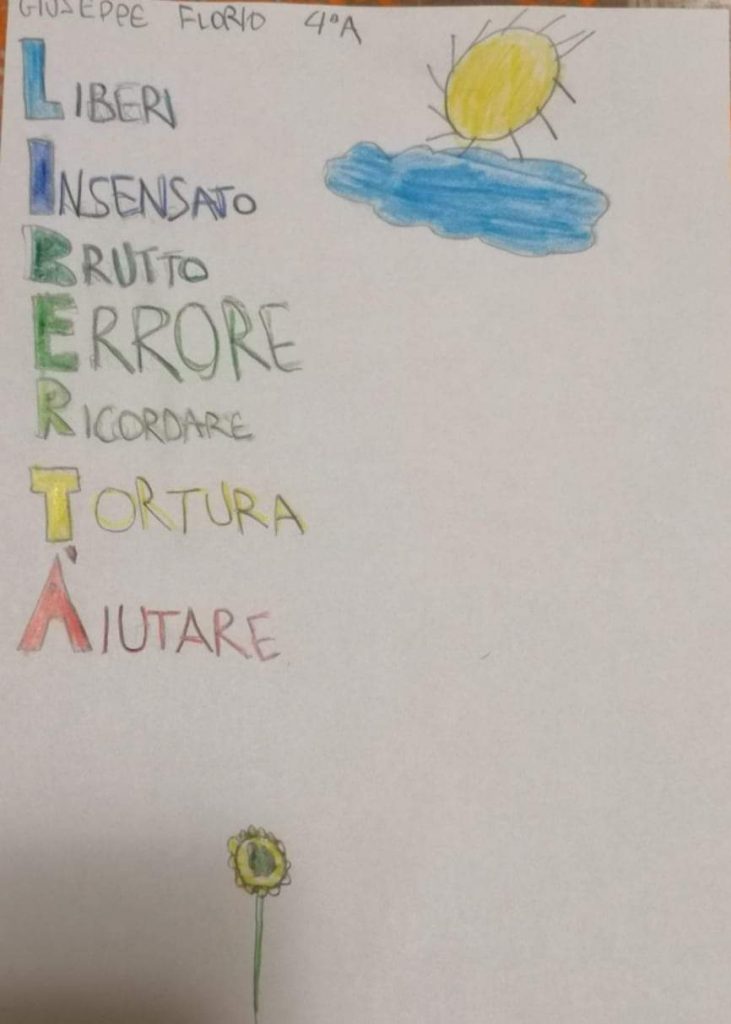 GIUSEPPE FLORIO 4°A
LIBERI
INSENSATO
BRUTTO
ERRORE
RICORDARE
TORTURA
ÀIUTARE